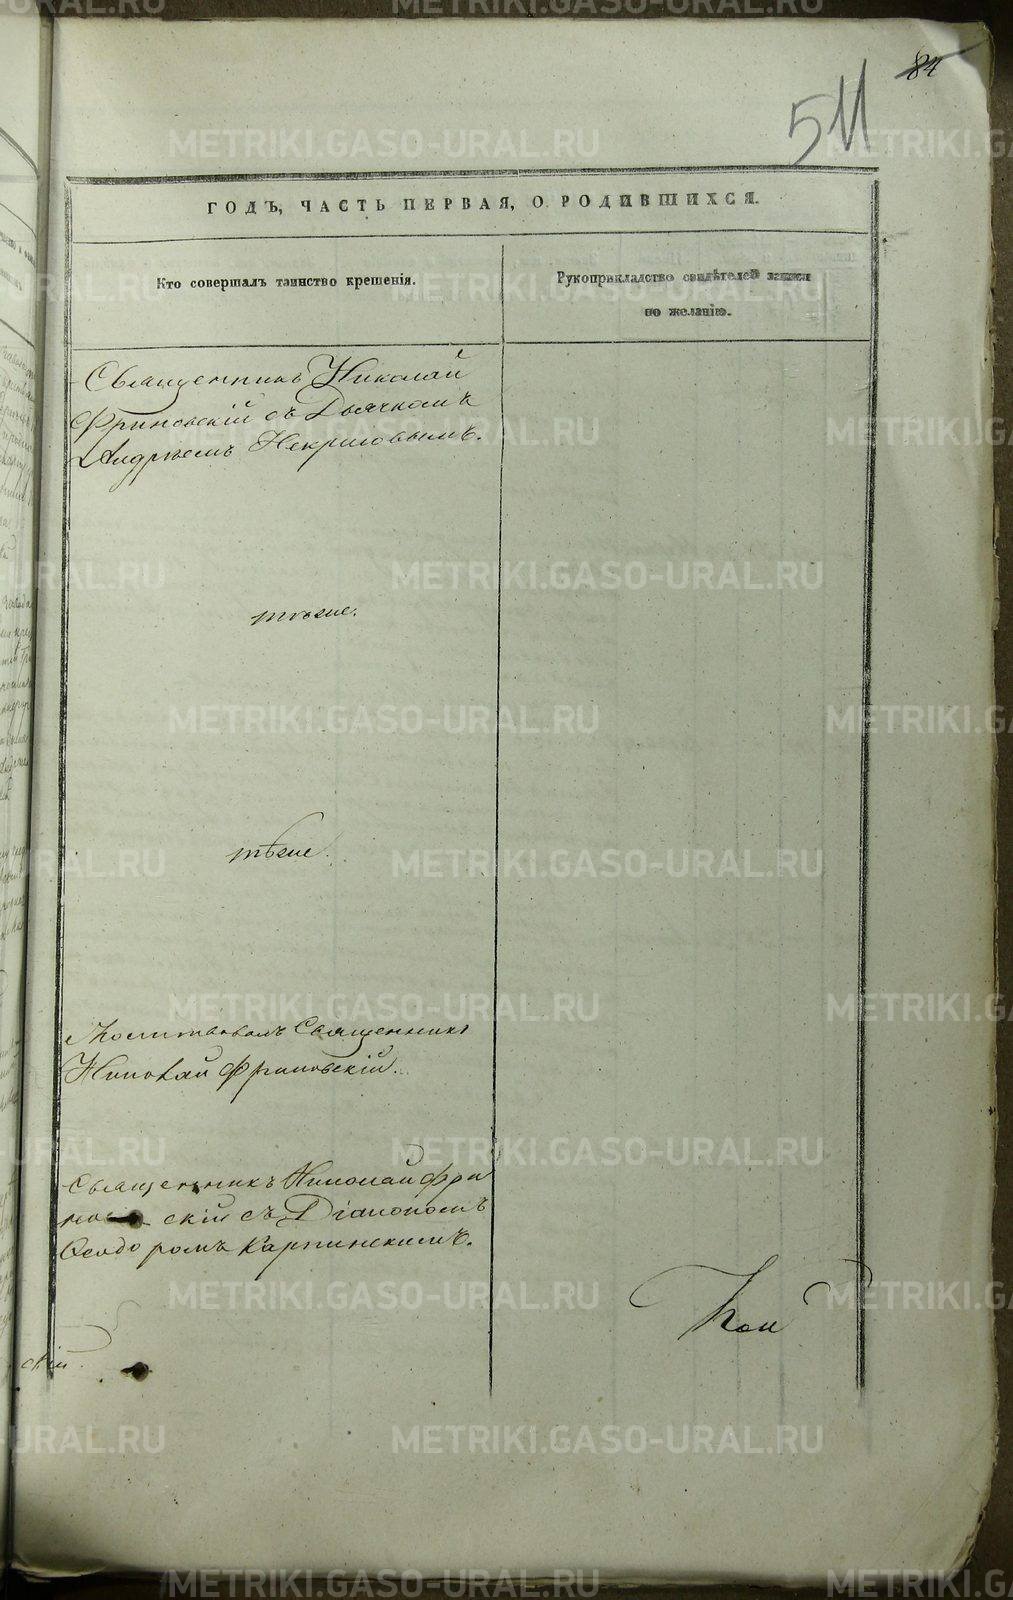 84
511
ГОДЪ, ЧАСТЬ ПЕРВАЯ, О РОДИВШИХСЯ.
Кто совершалъ таинство крещенія.
Рукоприкладство свидѣтелей записи
по желанію.
Священникъ Николай
Фриновскій съ Дьячкомъ
Андреемъ Некрасовымъ.
тѣже.
тѣже.
Молитвовалъ Священникъ
Николай Фриновскій.
Священникъ Николай Фри
новскій съ Діакономъ
Ѳеодоромъ Карпинскимъ.
скій.
METRIKI.GASO-URAL.RU